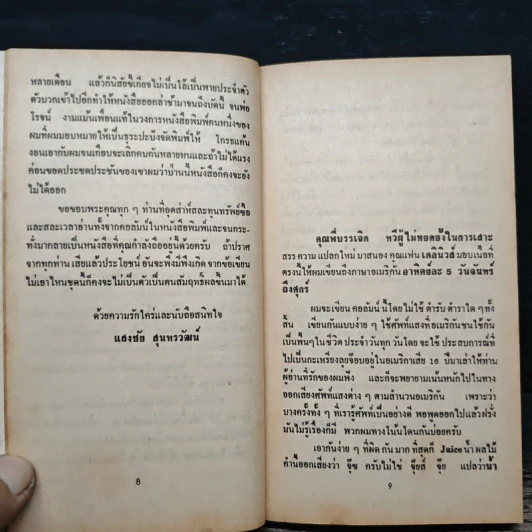 หลายเดือน แล้วก็นิสัยขี้เกียจไม่เป็นโล้เป็นพายประจำตัว
ตัวบวกเข้าไปอีกทำให้หนังสือออกล่าช้ามาจนถึงบัดนี้ จนพ่อ
โรจน์ งามแม้นเพื่อนแท้ในวงการหนังสือพิมพ์คนหนึ่งของ
ผมที่ผมมอบหมายให้เป็นธุระประบังจัดพิมพ์ให้ โกรธแค้น
งอนเอากับผมจนเกือบจะเลิกคบกันหลายหนและถ้าไม่ได้แรง
ค่อนขอดประชดประชันของเขาผมว่าป่านนี้หนังสือก็คงจะยัง
ไม่ได้ออก
ขอขอบพระคุณทุก ๆ ท่านที่อุตส่าห์สละทุนทรัพย์ซื้อ
และสละเวลาอ่านทั้งจากคอลัมน์ในหนังสือพิมพ์และจนกระ-
ทั่งมากลายเป็นหนังสือที่คุณกำลังถืออยู่นี้ด้วยครับ ถ้าปราศ
จากทุกท่าน เสียแล้วประโยชน์ อันจะพึงมีพึงเกิด จากข้อเขียน
ไม่เอาไหนชุดนี้ก็คงจะ ไม่เป็นตัวเป็นตนสมฤทธิ์ผลขึ้นมาได้
ด้วยความรักใคร่และนับถือสนิทใจ
แสงชัย สุนทรวัฒน์
8
คุณพี่บรรเจิด ทวี ผู้ไม่หยุดยั้งในการเสาะ
สรร ความ แปลกใหม่ มาสนอง คุณแฟน เดลินิวส์ มอบเนื้อที่
ตรงนี้ให้ผมเขียนถึงภาษาอเมริกัน อาทิตย์ละ 5 วันจันทร์
ถึงศุกร์
ผมจะเขียน คอลัมน์ นี้โดยไม่ใช้ ตำรับ ตำราใด ๆ ทั้ง
สิ้น เขียนกันแบบง่าย ๆ ใช้ศัพท์แสงที่อเมริกันชนใช้กัน
เป็นพื้นๆ ในชีวิต ประจำวันทุก วันโดย จะใช้ ประสบการณ์ที่
ไปเป็นกะเหรี่ยงลุยจ๊อบอยู่ในอเมริกาเสีย 16 ปีมาเล่าให้ท่าน
ผู้อ่านที่รักของผมฟัง และก็จะพยายามเน้นหนักไปในทาง
ออกเสียงศัพท์แสงต่าง ๆ ตามสำนวนอเมริกัน เพราะว่า
บางครั้งทั้ง ๆ ที่เรารู้ศัพท์เป็นอย่างดี พอพูดออกไปแล้วฝรั่ง
มันไม่รู้เรื่องก็มี พวกผมทางโน้นโดนกันบ่อยครับ
เอากันง่าย ๆ ที่ผิด กัน มาก ที่สุดก็ Juice น้ำ ผลไม้
คำนี้ออกเสียงว่า จู๊ซ ครับไม่ใช่ จุ๊ยส์ จุ๊ย แปลว่าน้ำ
9